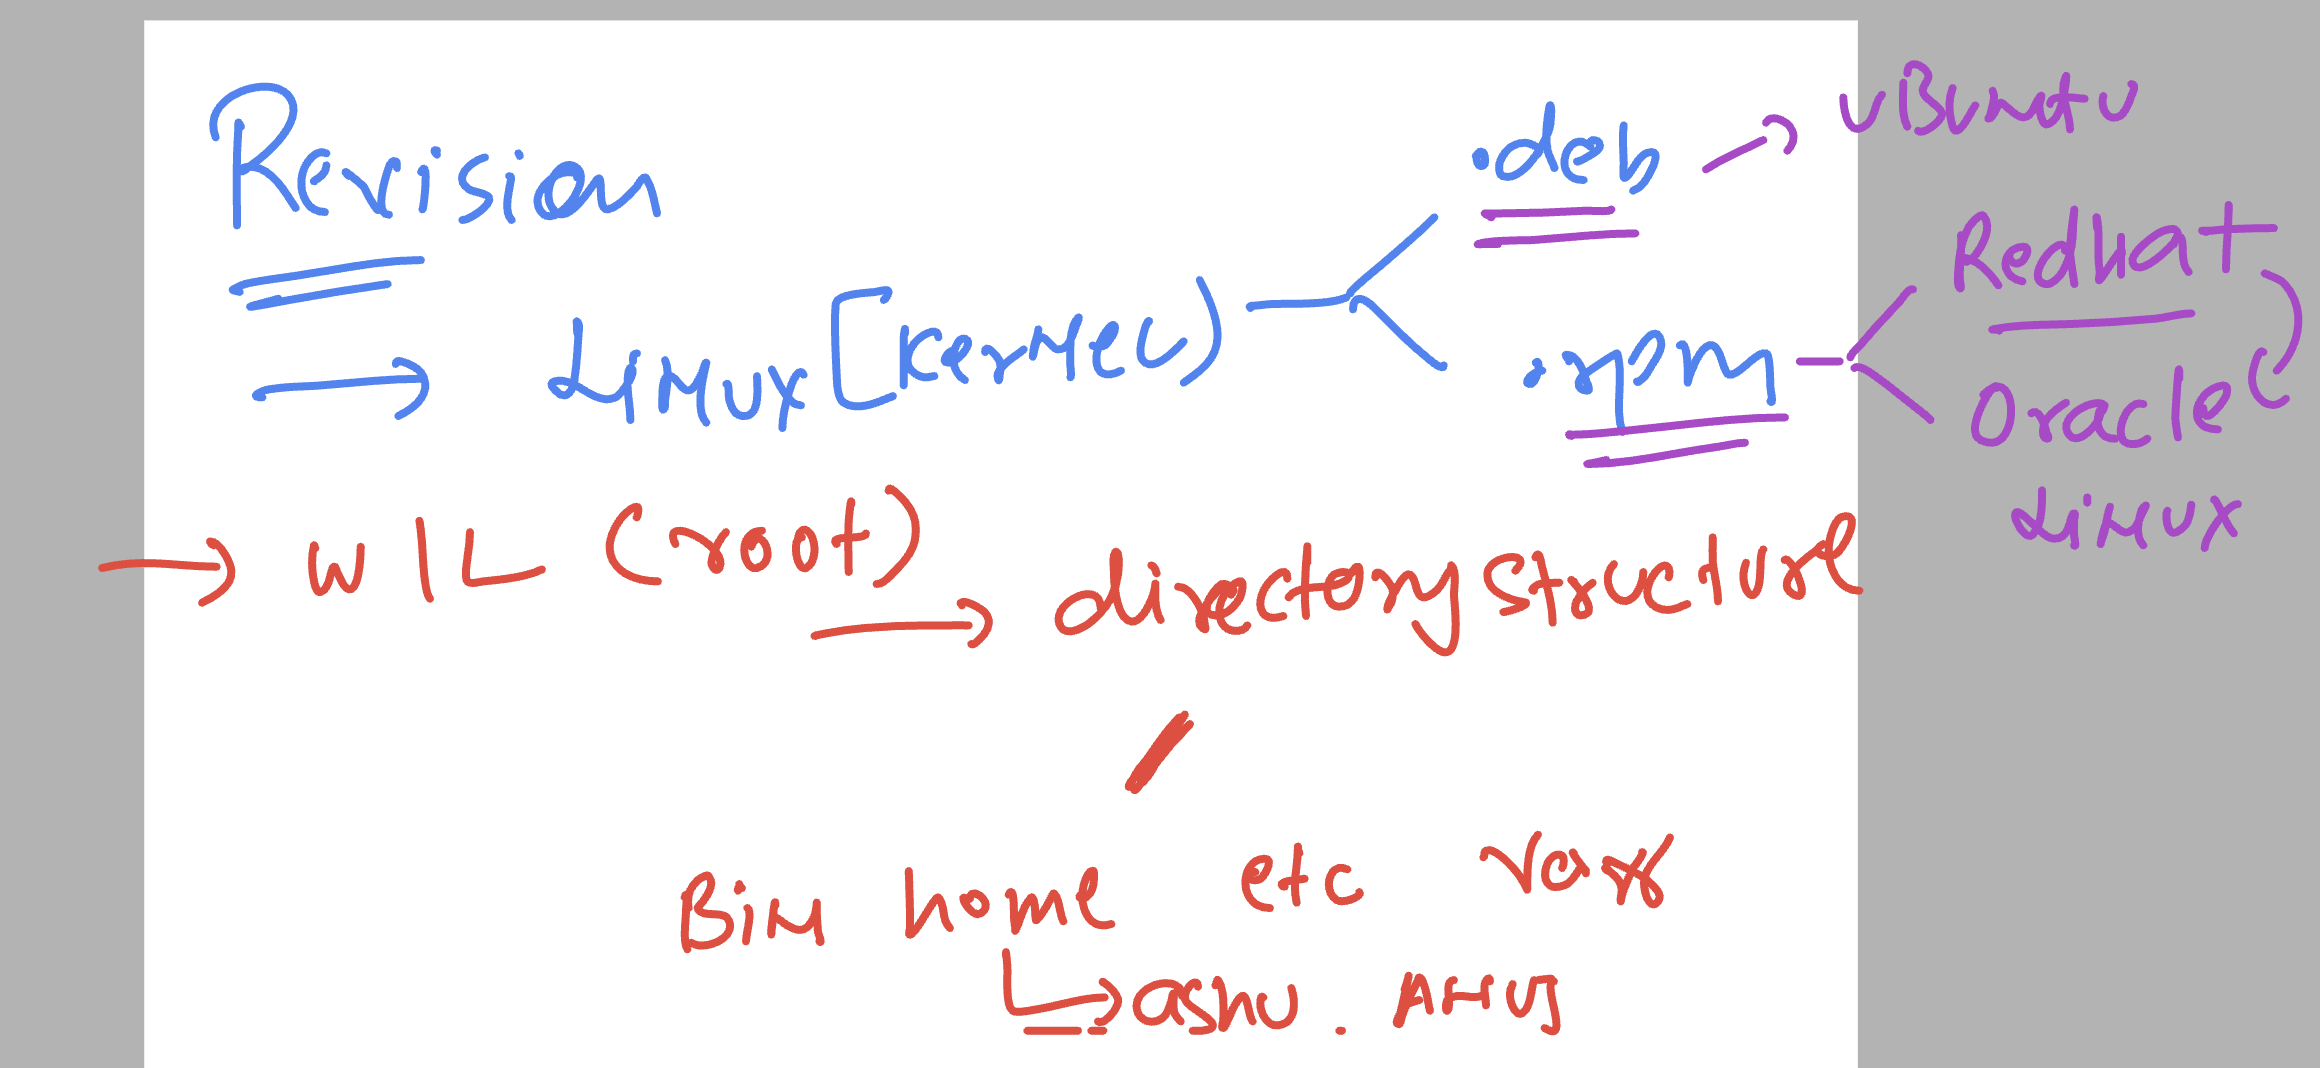 Revision
→ Linux [kernel)
.deb → UBuntu
.rpm
Redhat
Oracle
Linux
→ W/L (root)
→ directory structure
/
Bin home etc var
↳ ashu.